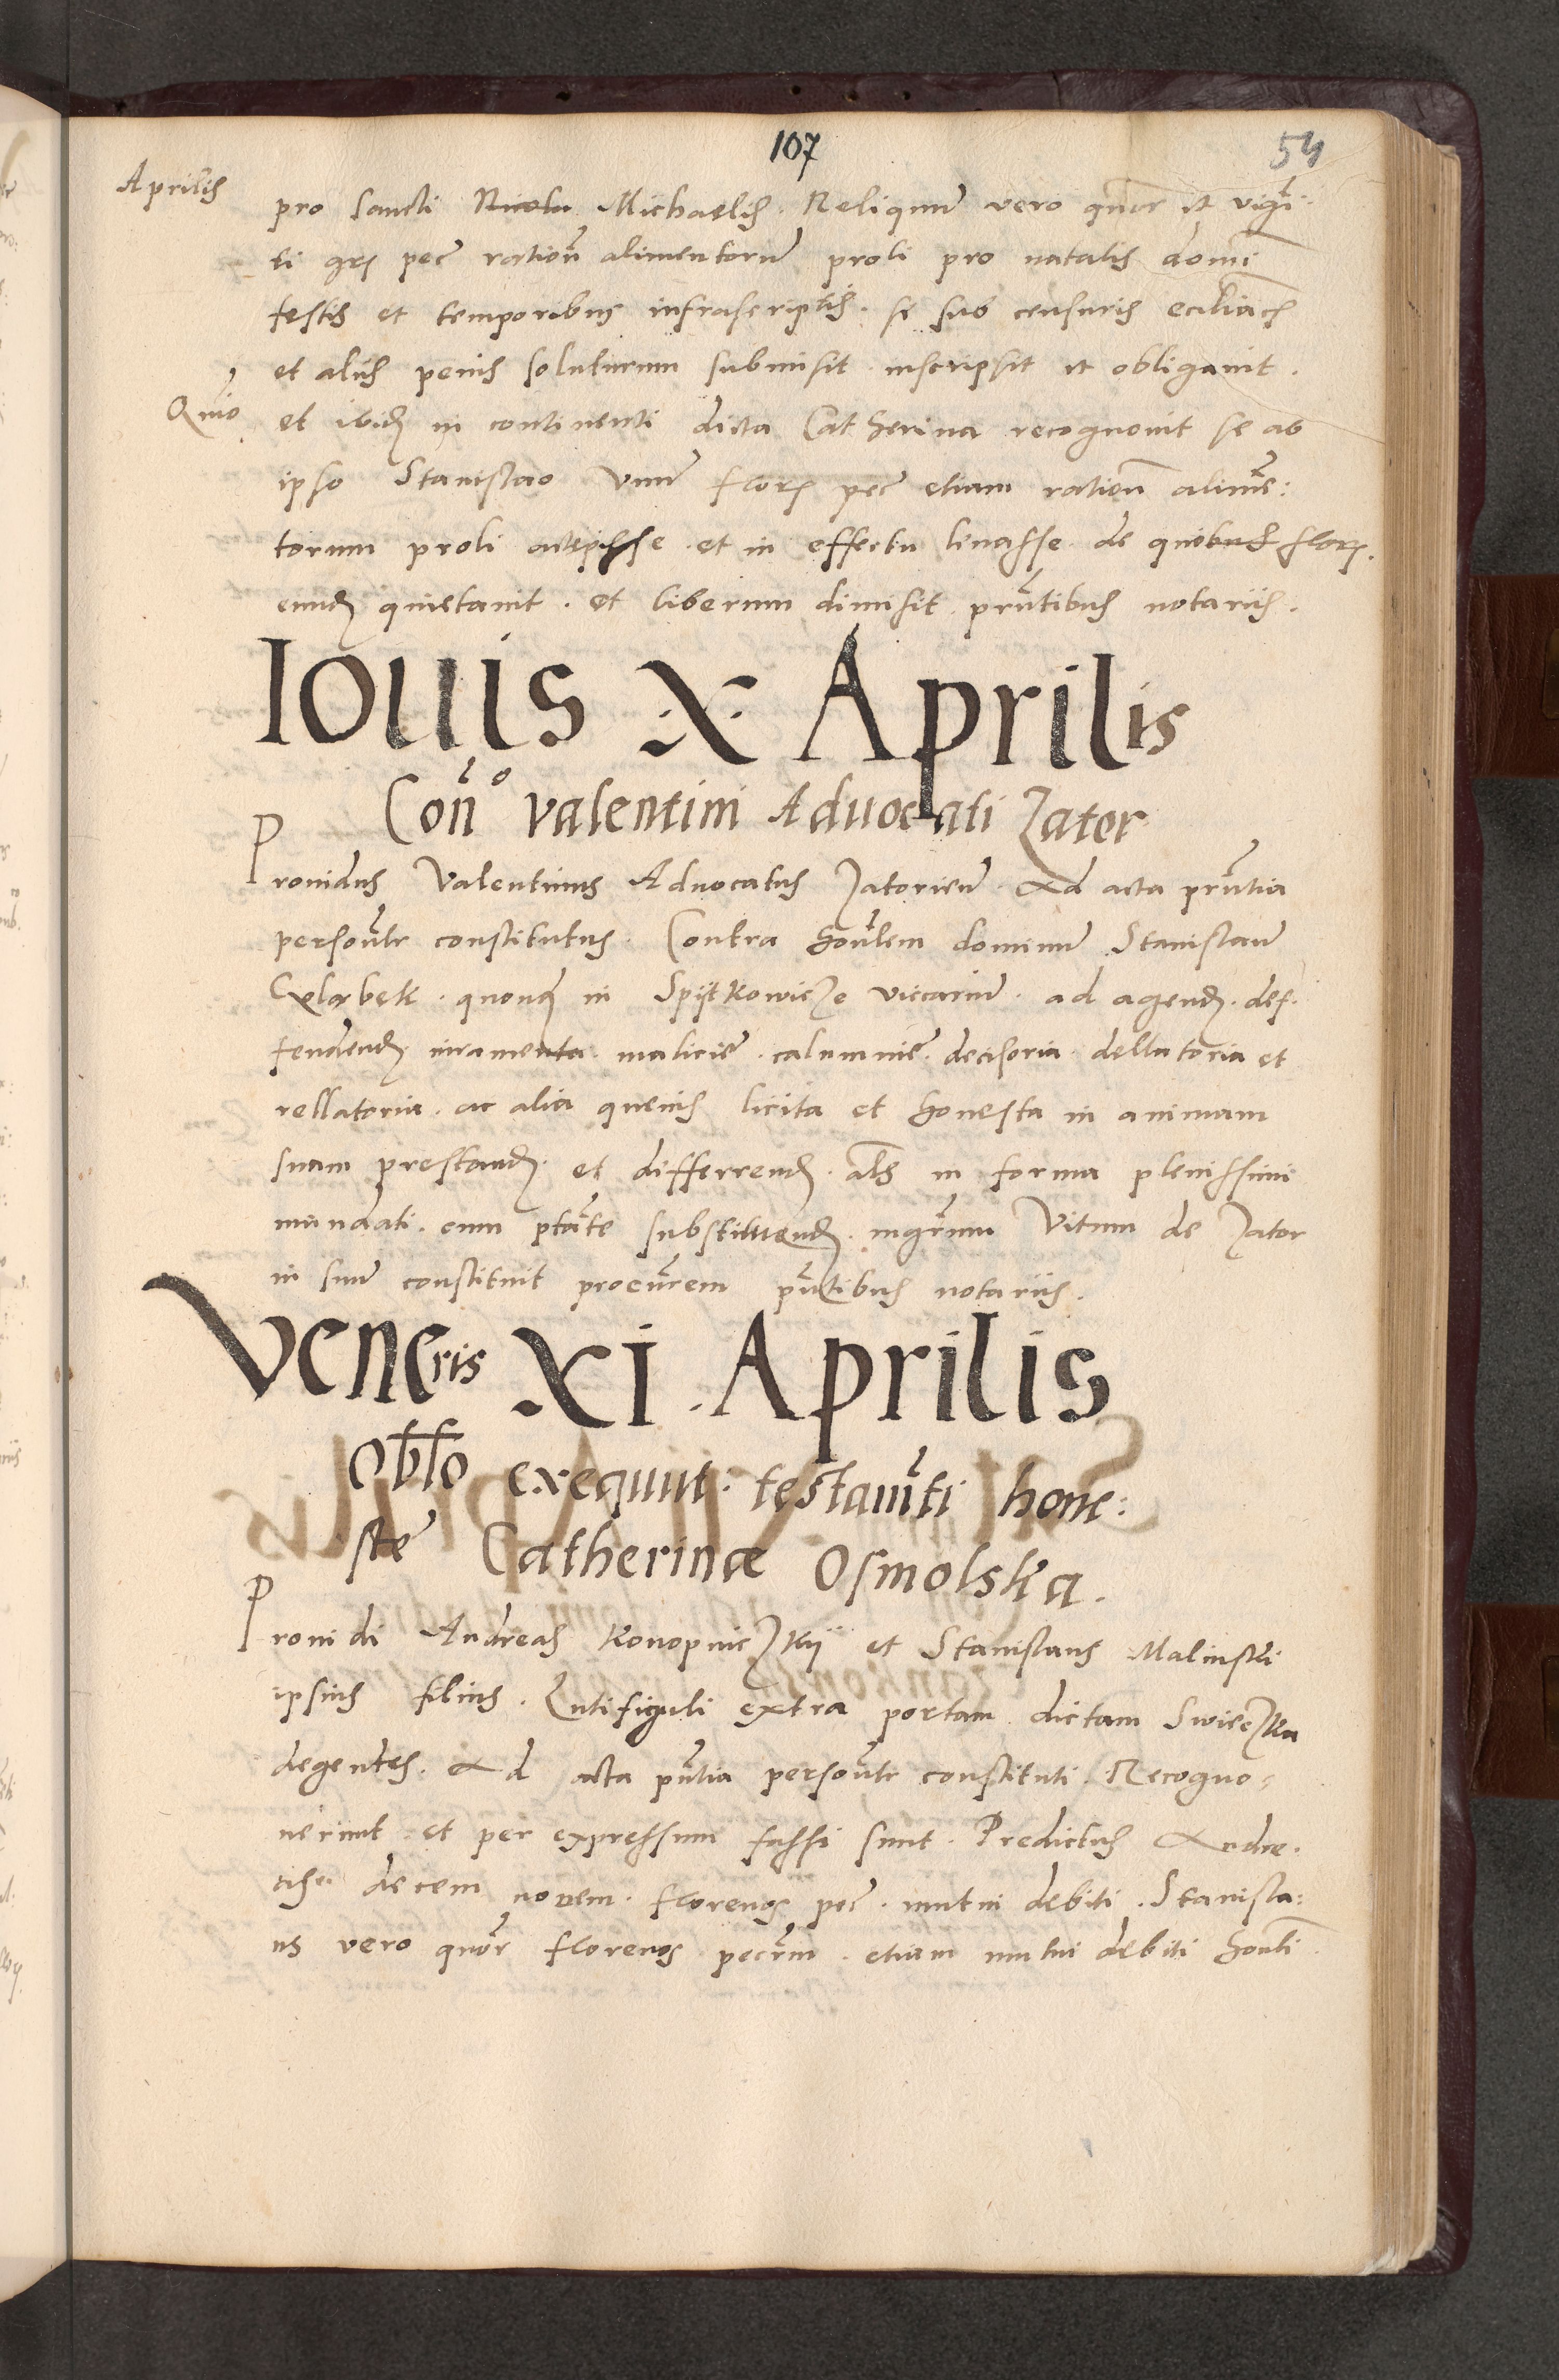 107
54
Aprilis
pro sancti Nicola Michaelis. Reliquum vero quatr et vigi
ti grs pec̄ ratione alimentorum proli pro natalis domī
festis et temporibus infrascriptis. se sub censuris eccliach
et alijs penis soluturum submisit inscripsit et obligavit.
Quio
et ibid in continenti dicta Catherina recognovit se ab
ipso Stanislao Vnum flor pec̄ etiam ratione alimē:
torum proli accepisse et in effectu levasse de quibus flor.
eund quietavit. et liberum dimisit prn̄tibus notariis.
Iovis X Aprilis
Con̄o Valentini Advocati Zator
Providus Valentinus Advocatus Zatorien̄. Ad acta prn̄tia
person̄lr constitutus. Contra hon̄lem dominum Stanislaum
quonḋ in Spijtkowicze viccarium. ad agend. def.
fendend. iuramenta. malicie. calumnie. decisoria. dellatoria et
rellatoria. ac alia quevis licita et honesta in animam
suam prestand. et differrend. als in forma plenissimi
mandati. cum ptāte substituend. mgr̄um Vitum de Zator
in suum constituit procur̄em pn̄tibus notariis.
Veneris XI. Aprilis
Obl̄o exequut. testam̄ti hone:
ste Catherinæ Osmolska.
Providi Andreas Konopniczkij et Stanislaus Malinski
ipsius filius. Lutifiguli extra portam dictam Swieczka
degentes. Ad acta pn̄tia person̄lr constituti. Recogno-
verunt et per expressum fassi sunt. Predictus Andre.
as decem novem. florenos pec̄. mutui debiti. Stanisla:
us vero quōr florenos pecr̄m. etiam mutui debiti hon̄li